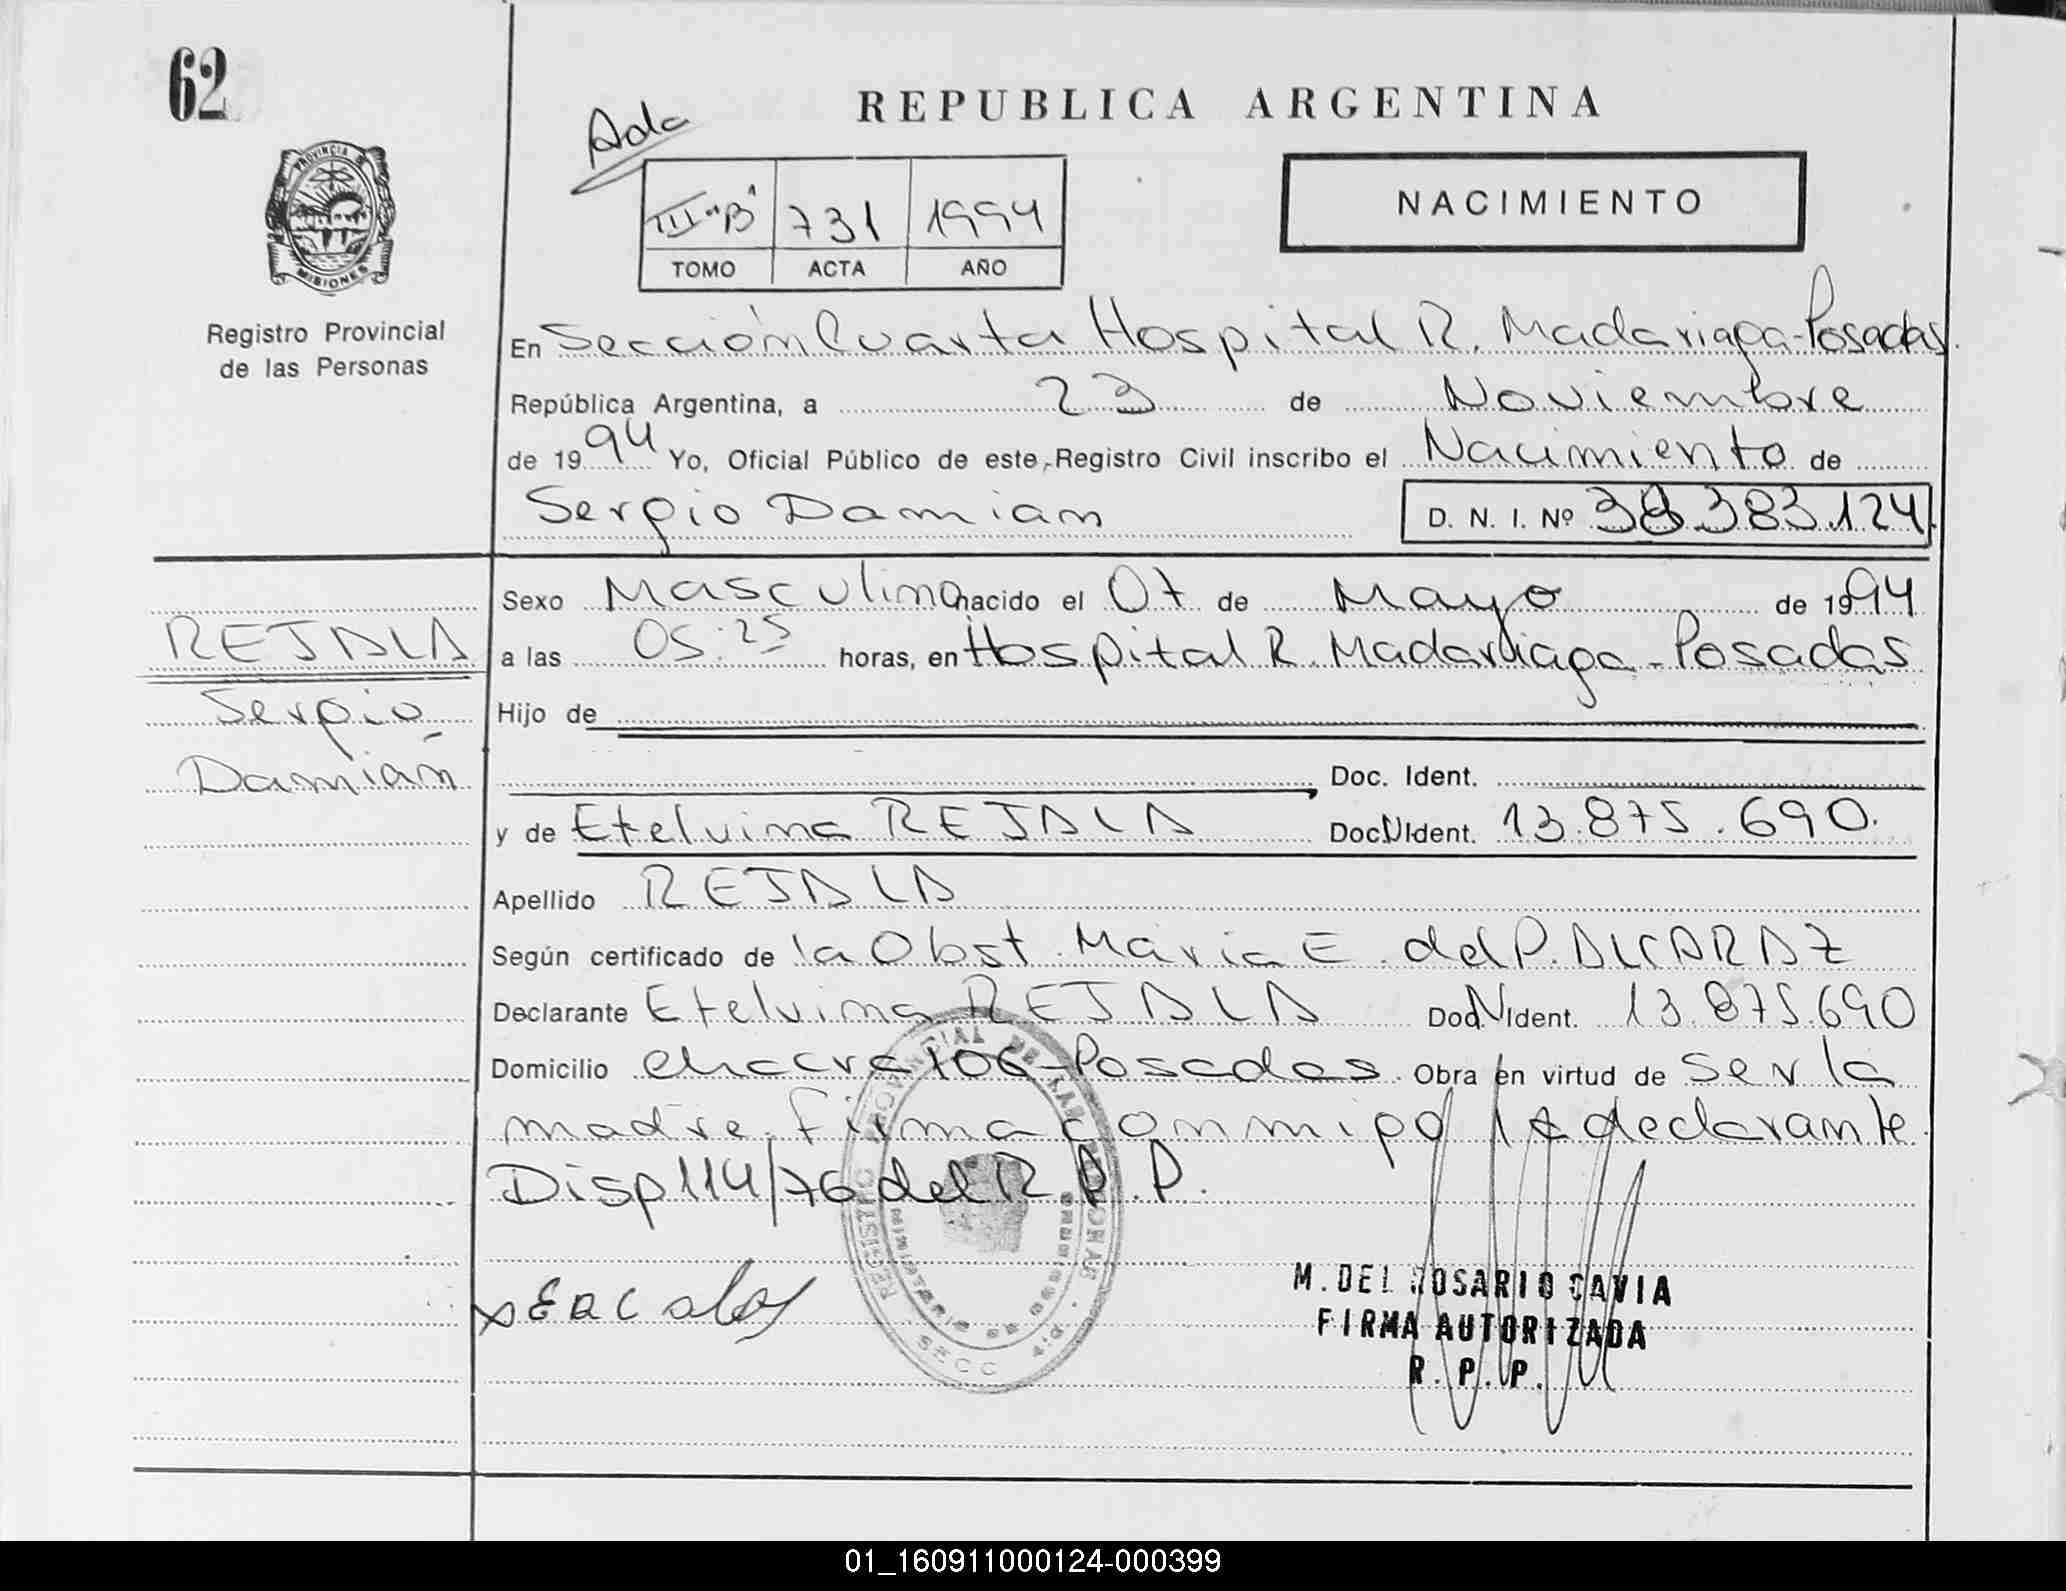 62
REPUBLICA ARGENTINA
Ada
III "B" 731 1994
TOMO ACTA AÑO
NACIMIENTO
PROVINCIA DE
MISIONES
Registro Provincial
de las Personas
En Sección Cuarta Hospital R. Madariaga-Posadas.
República Argentina, a 23 de Noviembre
de 1994 Yo, Oficial Público de este Registro Civil inscribo el Nacimiento de
Sergio Damian D. N. I. Nº 38.383.124
REJALA
Sergio
Damián
Sexo Masculino nacido el 07 de Mayo de 1994
a las 05:25 horas, en Hospital R. Madariaga-Posadas
Hijo de
Doc. Ident.
y de Etelvina REJALA Doc.N Ident. 13.875.690.
Apellido REJALA
Según certificado de la Obst. Maria E. del P. ALCARAZ
Declarante Etelvina REJALA Doc.N Ident. 13.875.690
Domicilio chacra 106-Posadas. Obra en virtud de ser la
madre. firma conmigo la declarante
Disp 114/76 del R.P.P.
M. DEL ROSARIO CAVIA
FIRMA AUTORIZADA
R. P. P.
01_160911000124-000399